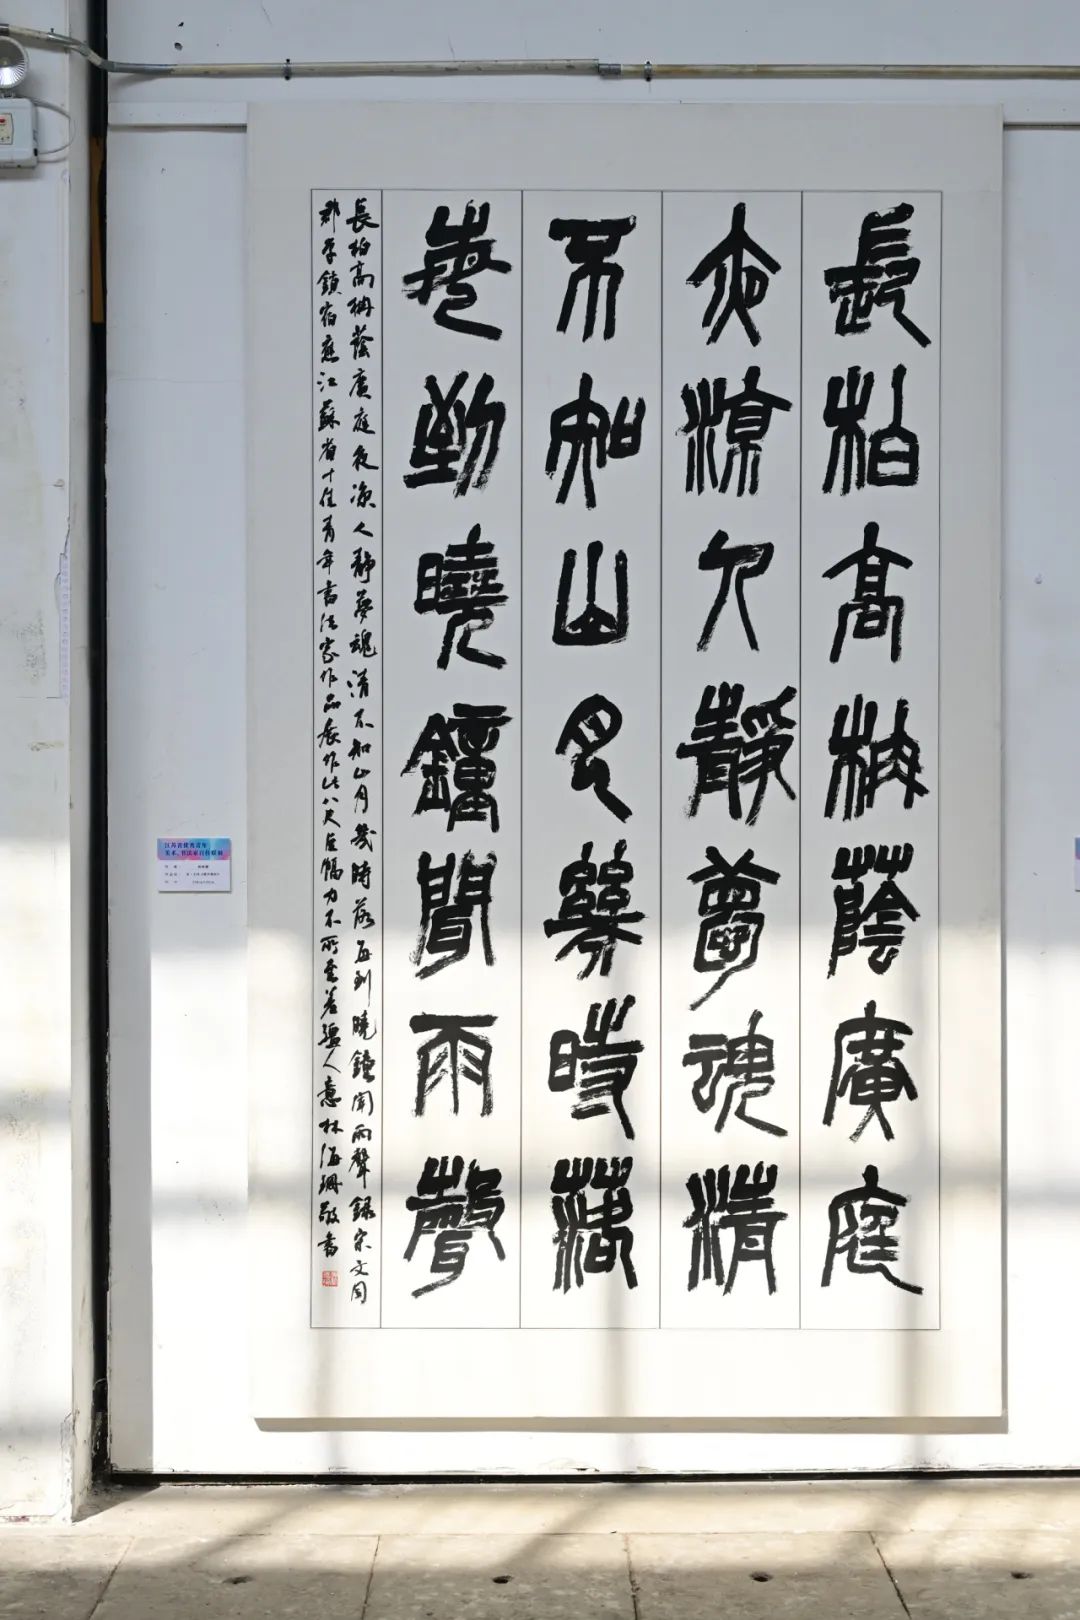 長柏高枏蔭廣庭
夜涼人靜夢魂清
不知山月幾時落
每到曉鐘聞雨聲
長柏高枏蔭廣庭夜涼人靜夢魂清不知山月幾時落每到曉鐘聞雨聲錄宋文同
郡學鎖宿應江蘇省十佳青年書法家作品展作此八尺巨幅力不所差强人意林海珊敬書
江苏省优秀青年
美术、书法家百佳联展